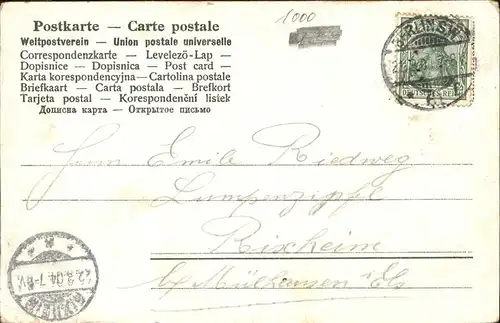 Postkarte — Carte postale
Weltpostverein – Union postale universelle
Correspondenzkarte — Levelező-Lap —
Dopisnice — Dopisnica — Post card —
Karta korespondencyjna — Cartolina postale
Briefkaart — Carta postala — Brefkort
Tarjeta postal — Korespondenční listek
Дописна карта — Открытое письмо
1000
Herrn Emile Riedweg
Lumpenzipfel
Rixheim
b/ Mülhausen i/Els